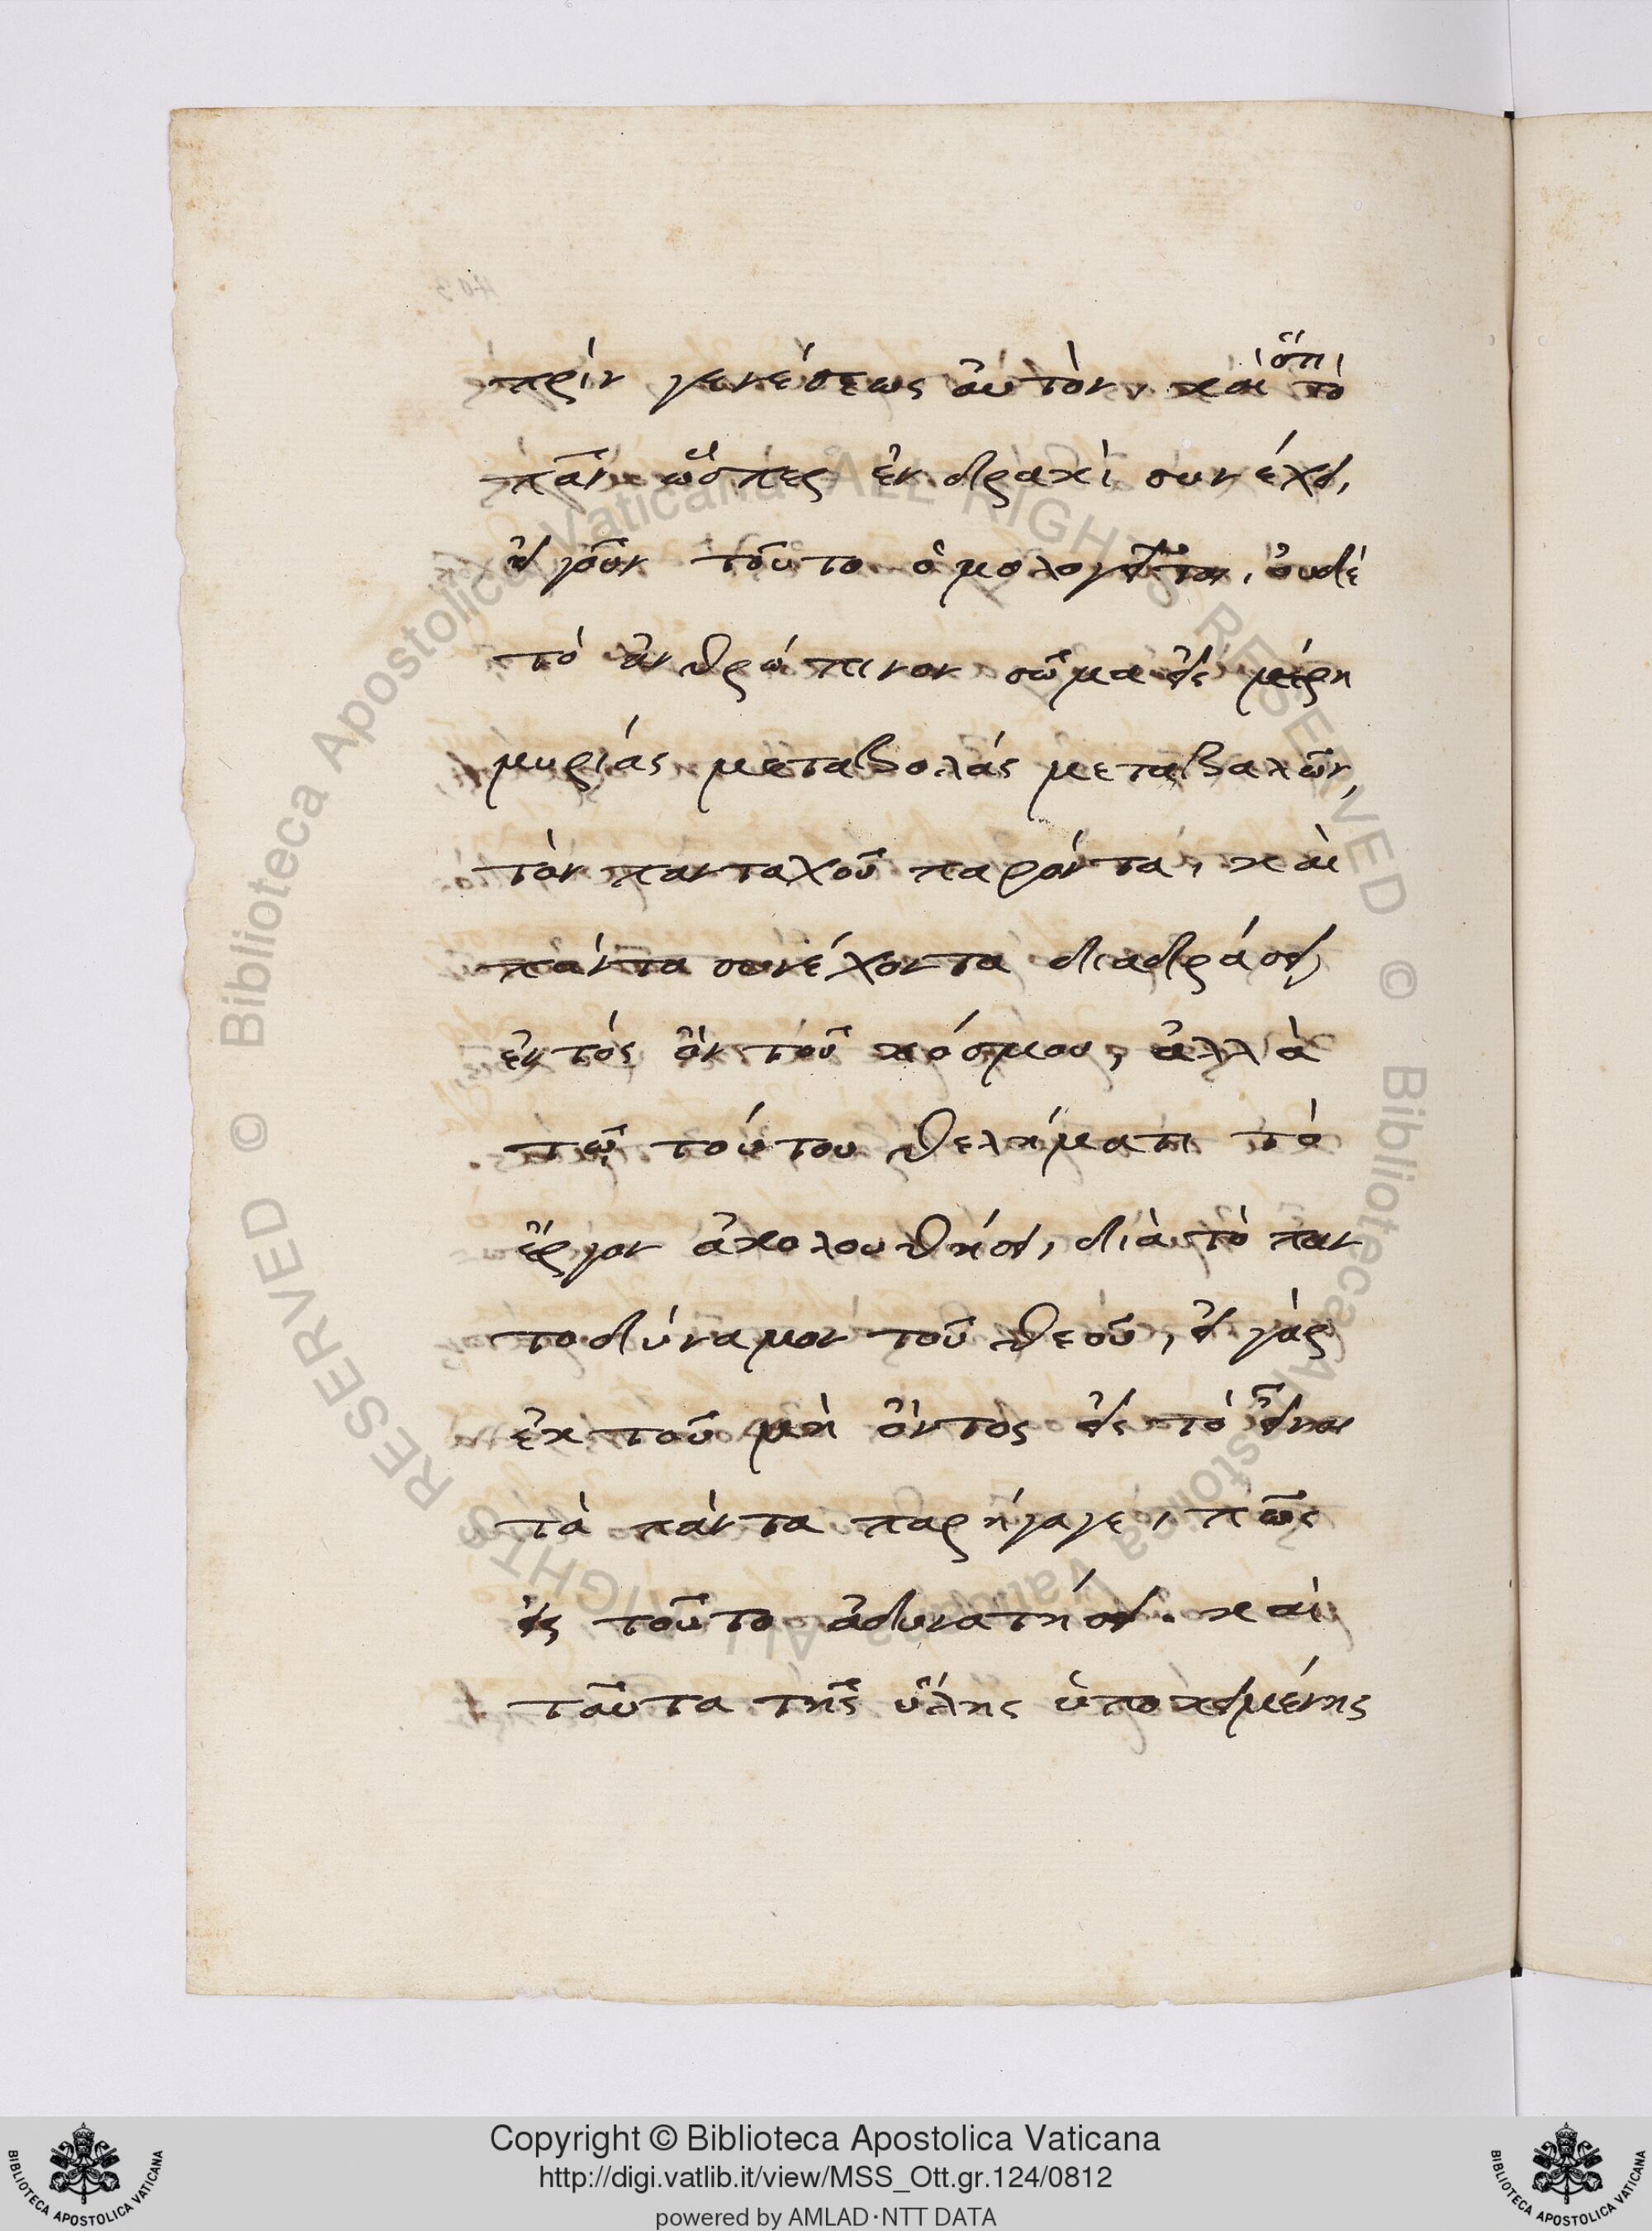 ὅτι
πρὶν γενέσεως αὐτὸν, καὶ τὸ
πᾶν ὥσπερ ἐν δρακὶ συνέχει,
εἰ γοῦν τοῦτο ὁμολογεῖται, οὐδὲ
τὸ ἀνθρώπινον σῶμα εἰς μέρη
μυρίας μεταβολὰς μεταβαλῶν,
τὸν πανταχοῦ παρόντα, καὶ
πάντα συνέχοντα διαδράσει
ἐντὸς ὂν τοῦ κόσμου, ἀλλὰ
τῷ τούτου θελήματι τὸ
ἔργον ἀκολουθήσει, διὰ τὸ παν
τοδύναμον τοῦ θεοῦ, εἰ γὰρ
ἐκ τοῦ μὴ ὄντος εἰς τὸ εἶναι
τὰ πάντα παρήγαγε, πῶς
εἰς τοῦτο ἀδυνατήσει. καὶ
ταῦτα τῆς ὕλης ὑποκειμένης
© Biblioteca Apostolica Vaticana ALL RIGHTS RESERVED © Biblioteca Apostolica Vaticana ALL RIGHTS RESERVED
Copyright © Biblioteca Apostolica Vaticana
http://digi.vatlib.it/view/MSS_Ott.gr.124/0812
powered by AMLAD·NTT DATA
BIBLIOTECA APOSTOLICA VATICANA
BIBLIOTECA APOSTOLICA VATICANA